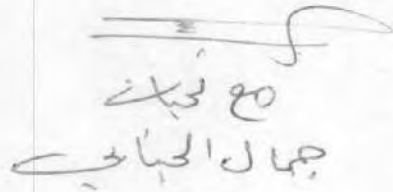 مع تحيات
جمال الجنابي